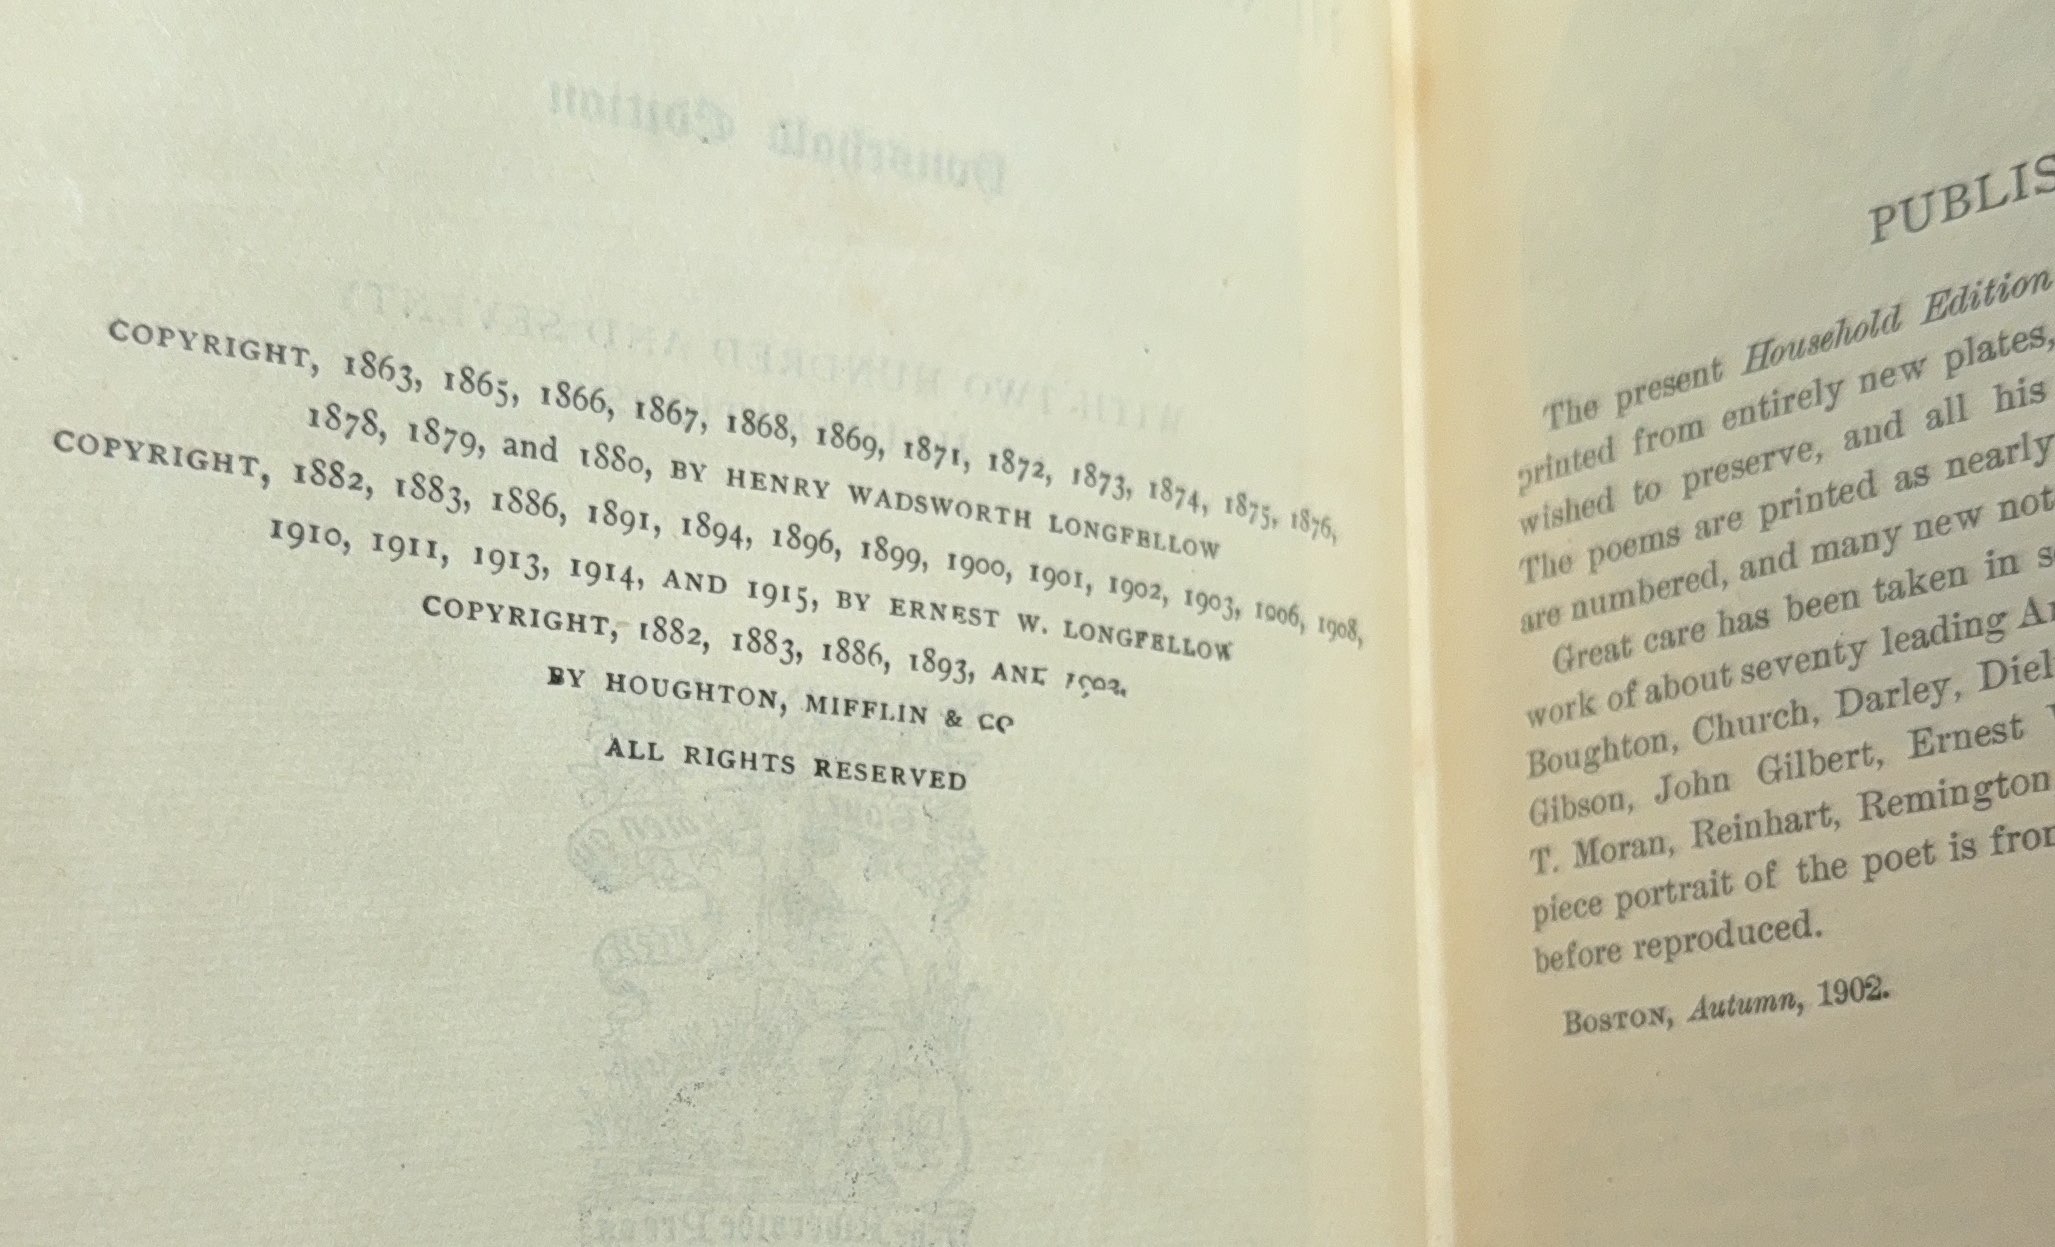 COPYRIGHT, 1863, 1865, 1866, 1867, 1868, 1869, 1871, 1872, 1873, 1874, 1875, 1876,
1878, 1879, and 1880, BY HENRY WADSWORTH LONGFELLOW
COPYRIGHT, 1882, 1883, 1886, 1891, 1894, 1896, 1899, 1900, 1901, 1902, 1903, 1906, 1908,
1910, 1911, 1913, 1914, AND 1915, BY ERNEST W. LONGFELLOW
COPYRIGHT, 1882, 1883, 1886, 1893, AND 1902,
BY HOUGHTON, MIFFLIN & CO
ALL RIGHTS RESERVED
PUBLIS
The present Household Edition
printed from entirely new plates,
wished to preserve, and all his
The poems are printed as nearly
are numbered, and many new not
Great care has been taken in s
work of about seventy leading Ar
Boughton, Church, Darley, Diel
Gibson, John Gilbert, Ernest
T. Moran, Reinhart, Remington
piece portrait of the poet is fror
before reproduced.
BOSTON, Autumn, 1902.